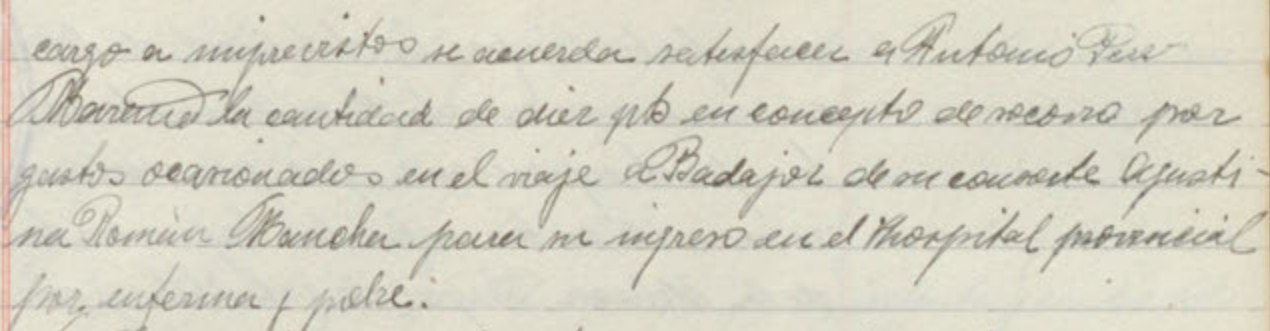 cargo a imprevistos se acuerda satisfacer a Antonio
la cantidad de diez pts en concepto de socorro por
gastos ocasionados en el viaje a Badajoz de su consorte Agusti-
na Román Mancha para su ingreso en el Hospital provincial
por enferma y pobre.